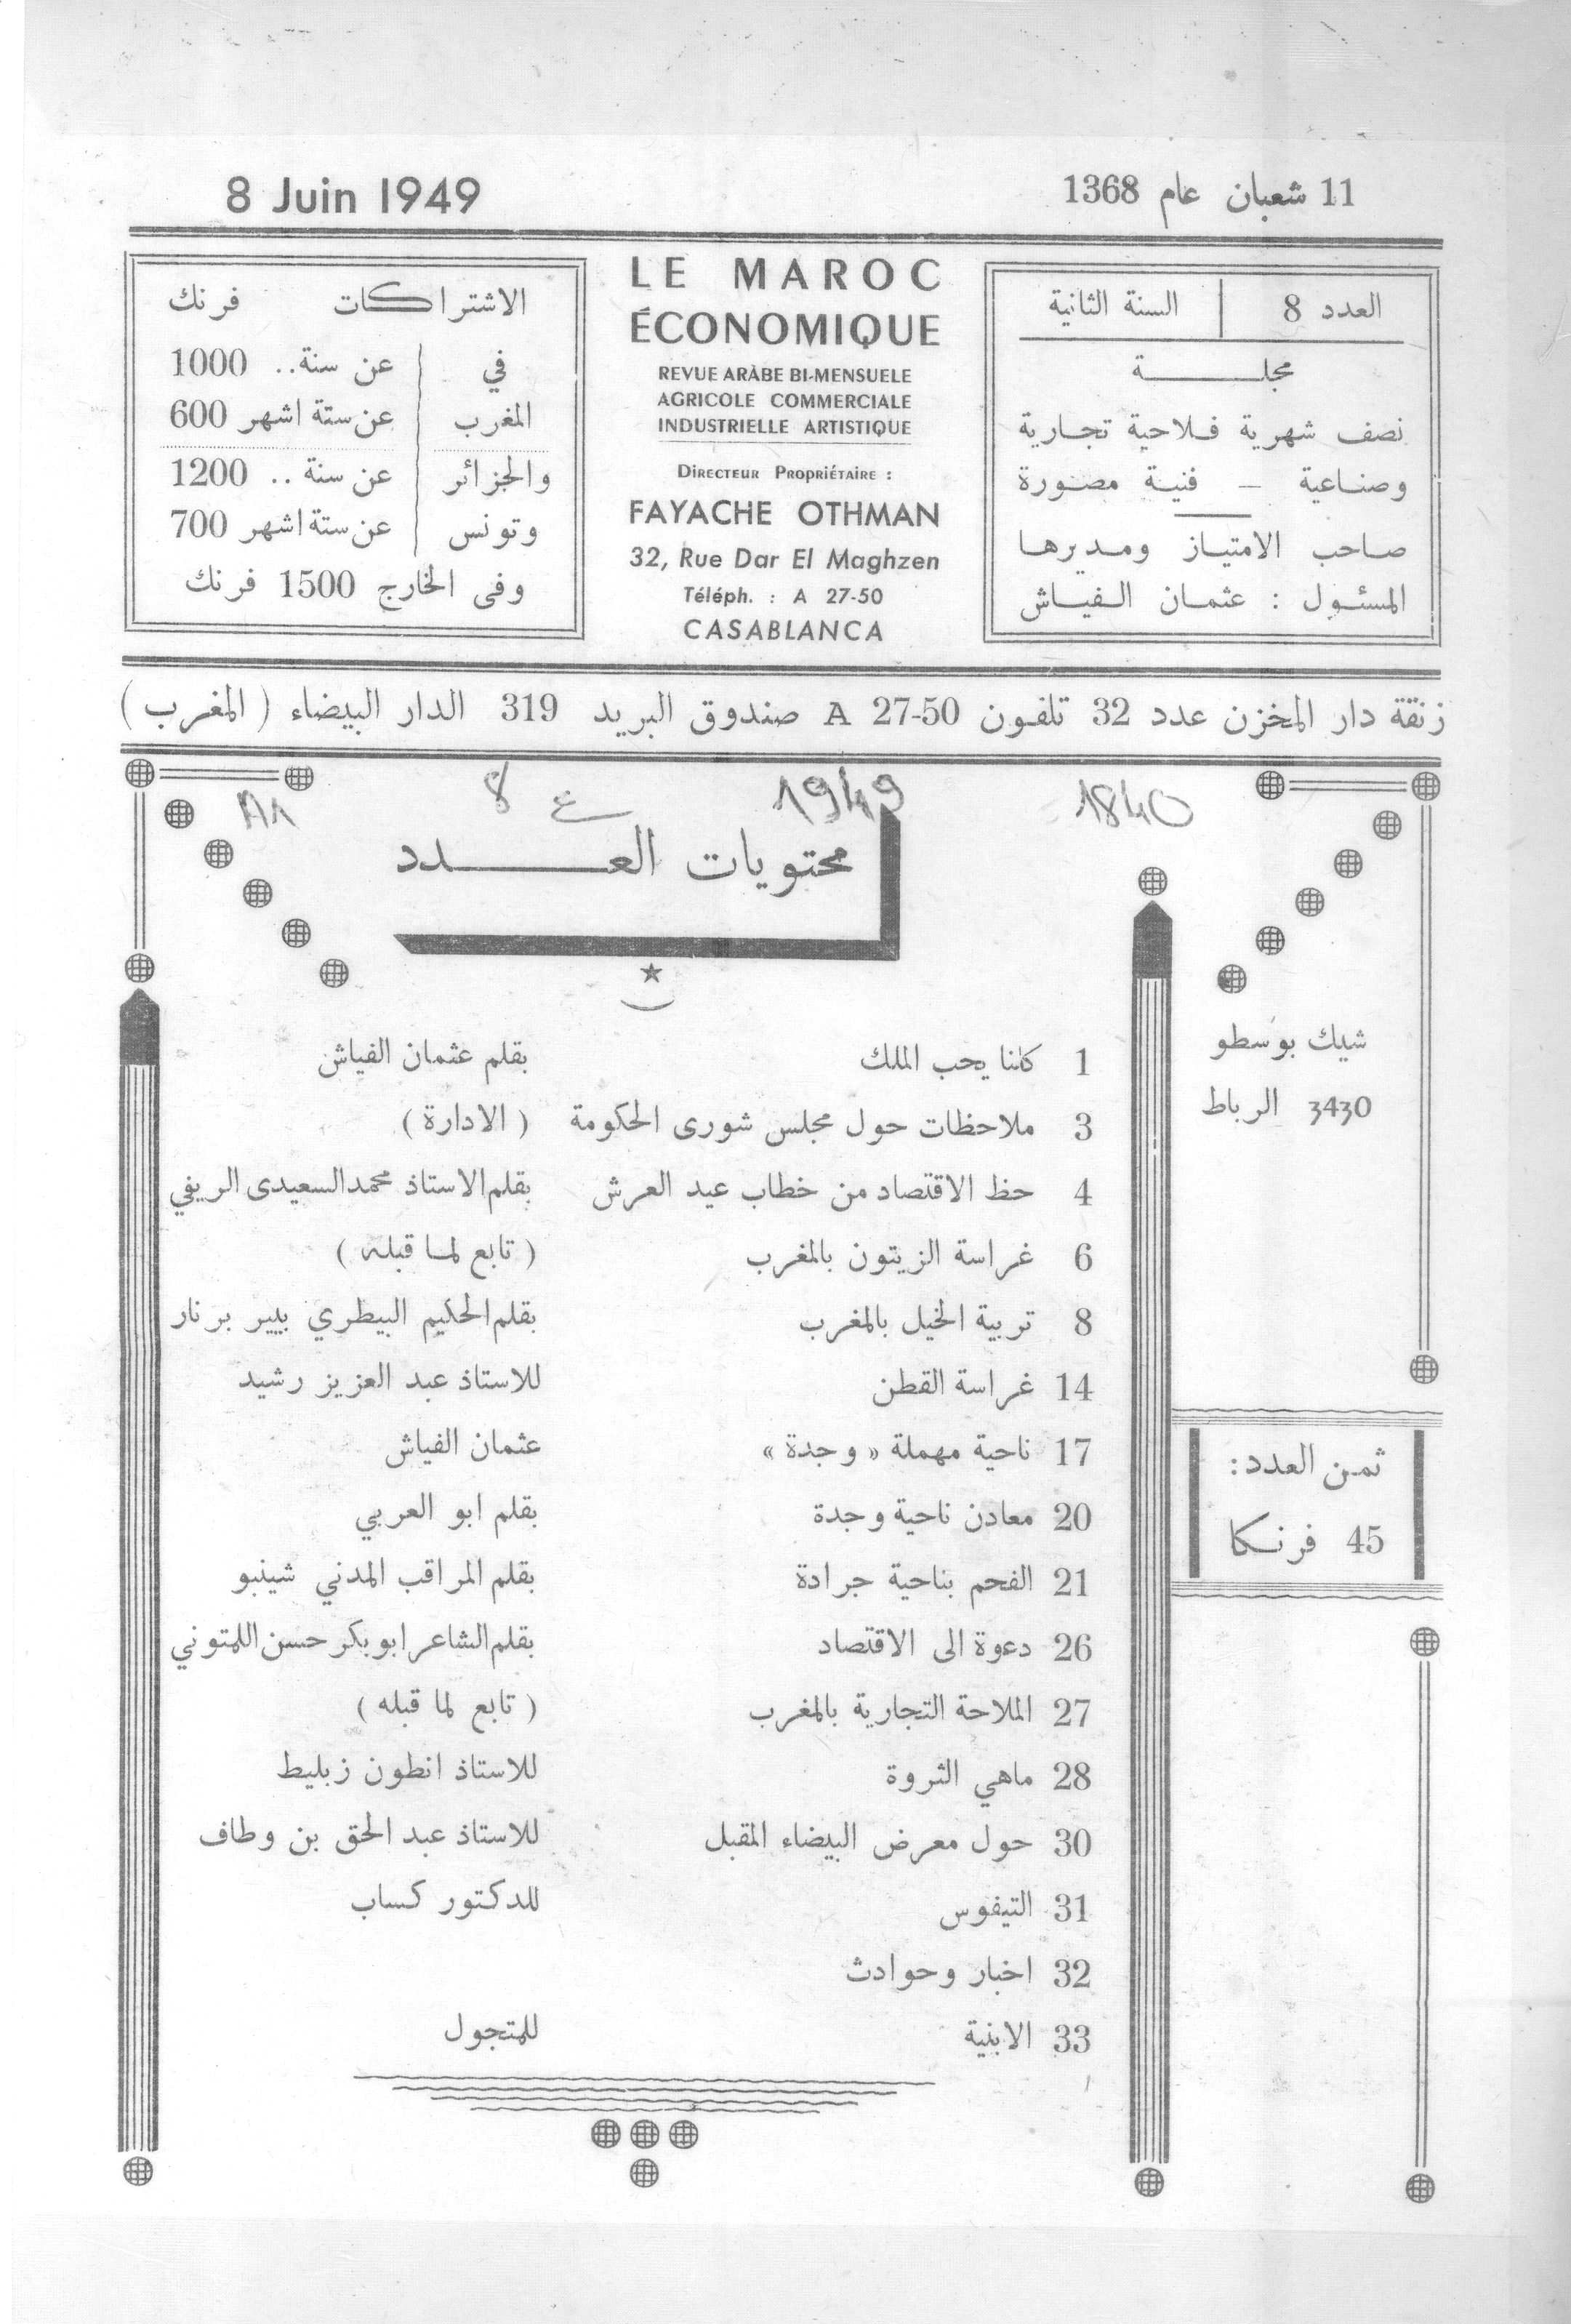 11 شعبان عام 1368
8 Juin 1949
العدد 8 السنة الثانية
مجلة
نصف شهرية فلاحية تجارية
وصناعية - فنية مصورة
صاحب الامتياز ومديرها
المسئول : عثمان الفياش
LE MAROC
ÉCONOMIQUE
REVUE ARÀBE BI-MENSUELE
AGRICOLE COMMERCIALE
INDUSTRIELLE ARTISTIQUE
DIRECTEUR PROPRIÉTAIRE :
FAYACHE OTHMAN
32, Rue Dar El Maghzen
Téléph. : A 27-50
CASABLANCA
الاشتراكات فرنك
في عن سنة.. 1000
المغرب عن ستة اشهر 600
والجزائر عن سنة .. 1200
وتونس عن ستة اشهر 700
وفى الخارج 1500 فرنك
زنقة دار المخزن عدد 32 تلفون A 27-50 صندوق البريد 319 الدار البيضاء ( المغرب )
1840 1949 ع 8 A1
محتويات العدد
1 كلنا يحب الملك بقلم عثمان الفياش
3 ملاحظات حول مجلس شورى الحكومة ( الادارة )
4 حظ الاقتصاد من خطاب عيد العرش بقلم الاستاذ محمد السعيدى الريفي
6 غراسة الزيتون بالمغرب ( تابع لما قبله )
8 تربية الخيل بالمغرب بقلم الحكيم البيطري بيير برنار
14 غراسة القطن للاستاذ عبد العزيز رشيد
17 ناحية مهملة « وجدة » عثمان الفياش
20 معادن ناحية وجدة بقلم ابو العربي
21 الفحم بناحية جرادة بقلم المراقب المدني شينبو
26 دعوة الى الاقتصاد بقلم الشاعر ابو بكر حسن اللمتوني
27 الملاحة التجارية بالمغرب ( تابع لما قبله )
28 ماهي الثروة للاستاذ انطون زبليط
30 حول معرض البيضاء المقبل للاستاذ عبد الحق بن وطاف
31 التيفوس للدكتور كساب
32 اخبار وحوادث
33 الابنية للمتجول
شيك بوسطو
3430 الرباط
ثمن العدد:
45 فرنكا